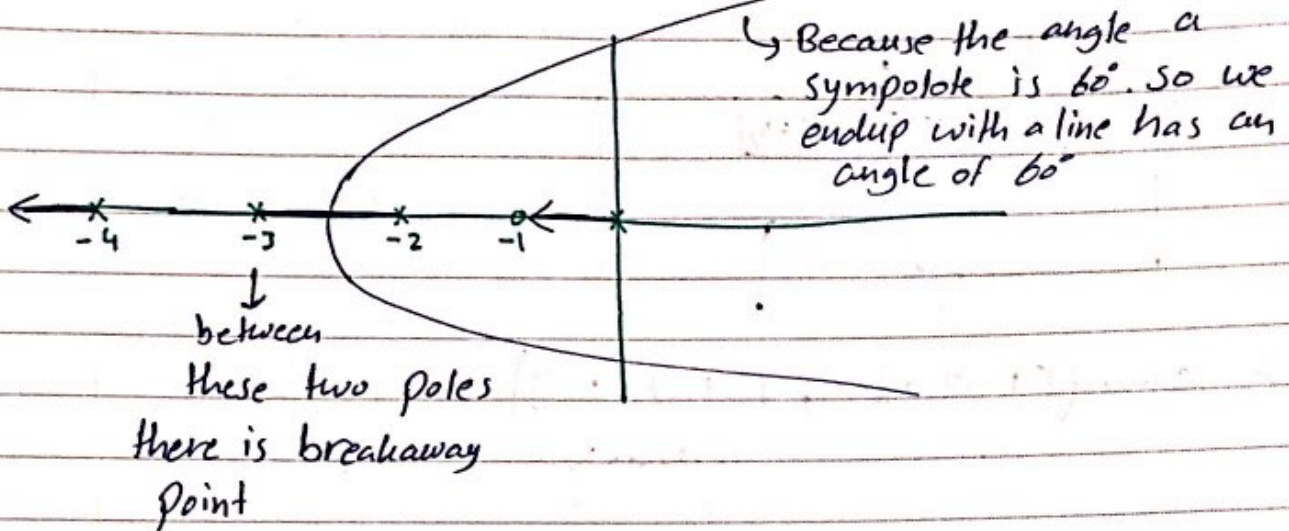 ↳ Because the angle a
sympolote is 60°. so we
endup with a line has an
angle of 60°
-4 -3 -2 -1
↓
between
these two poles
there is breakaway
point